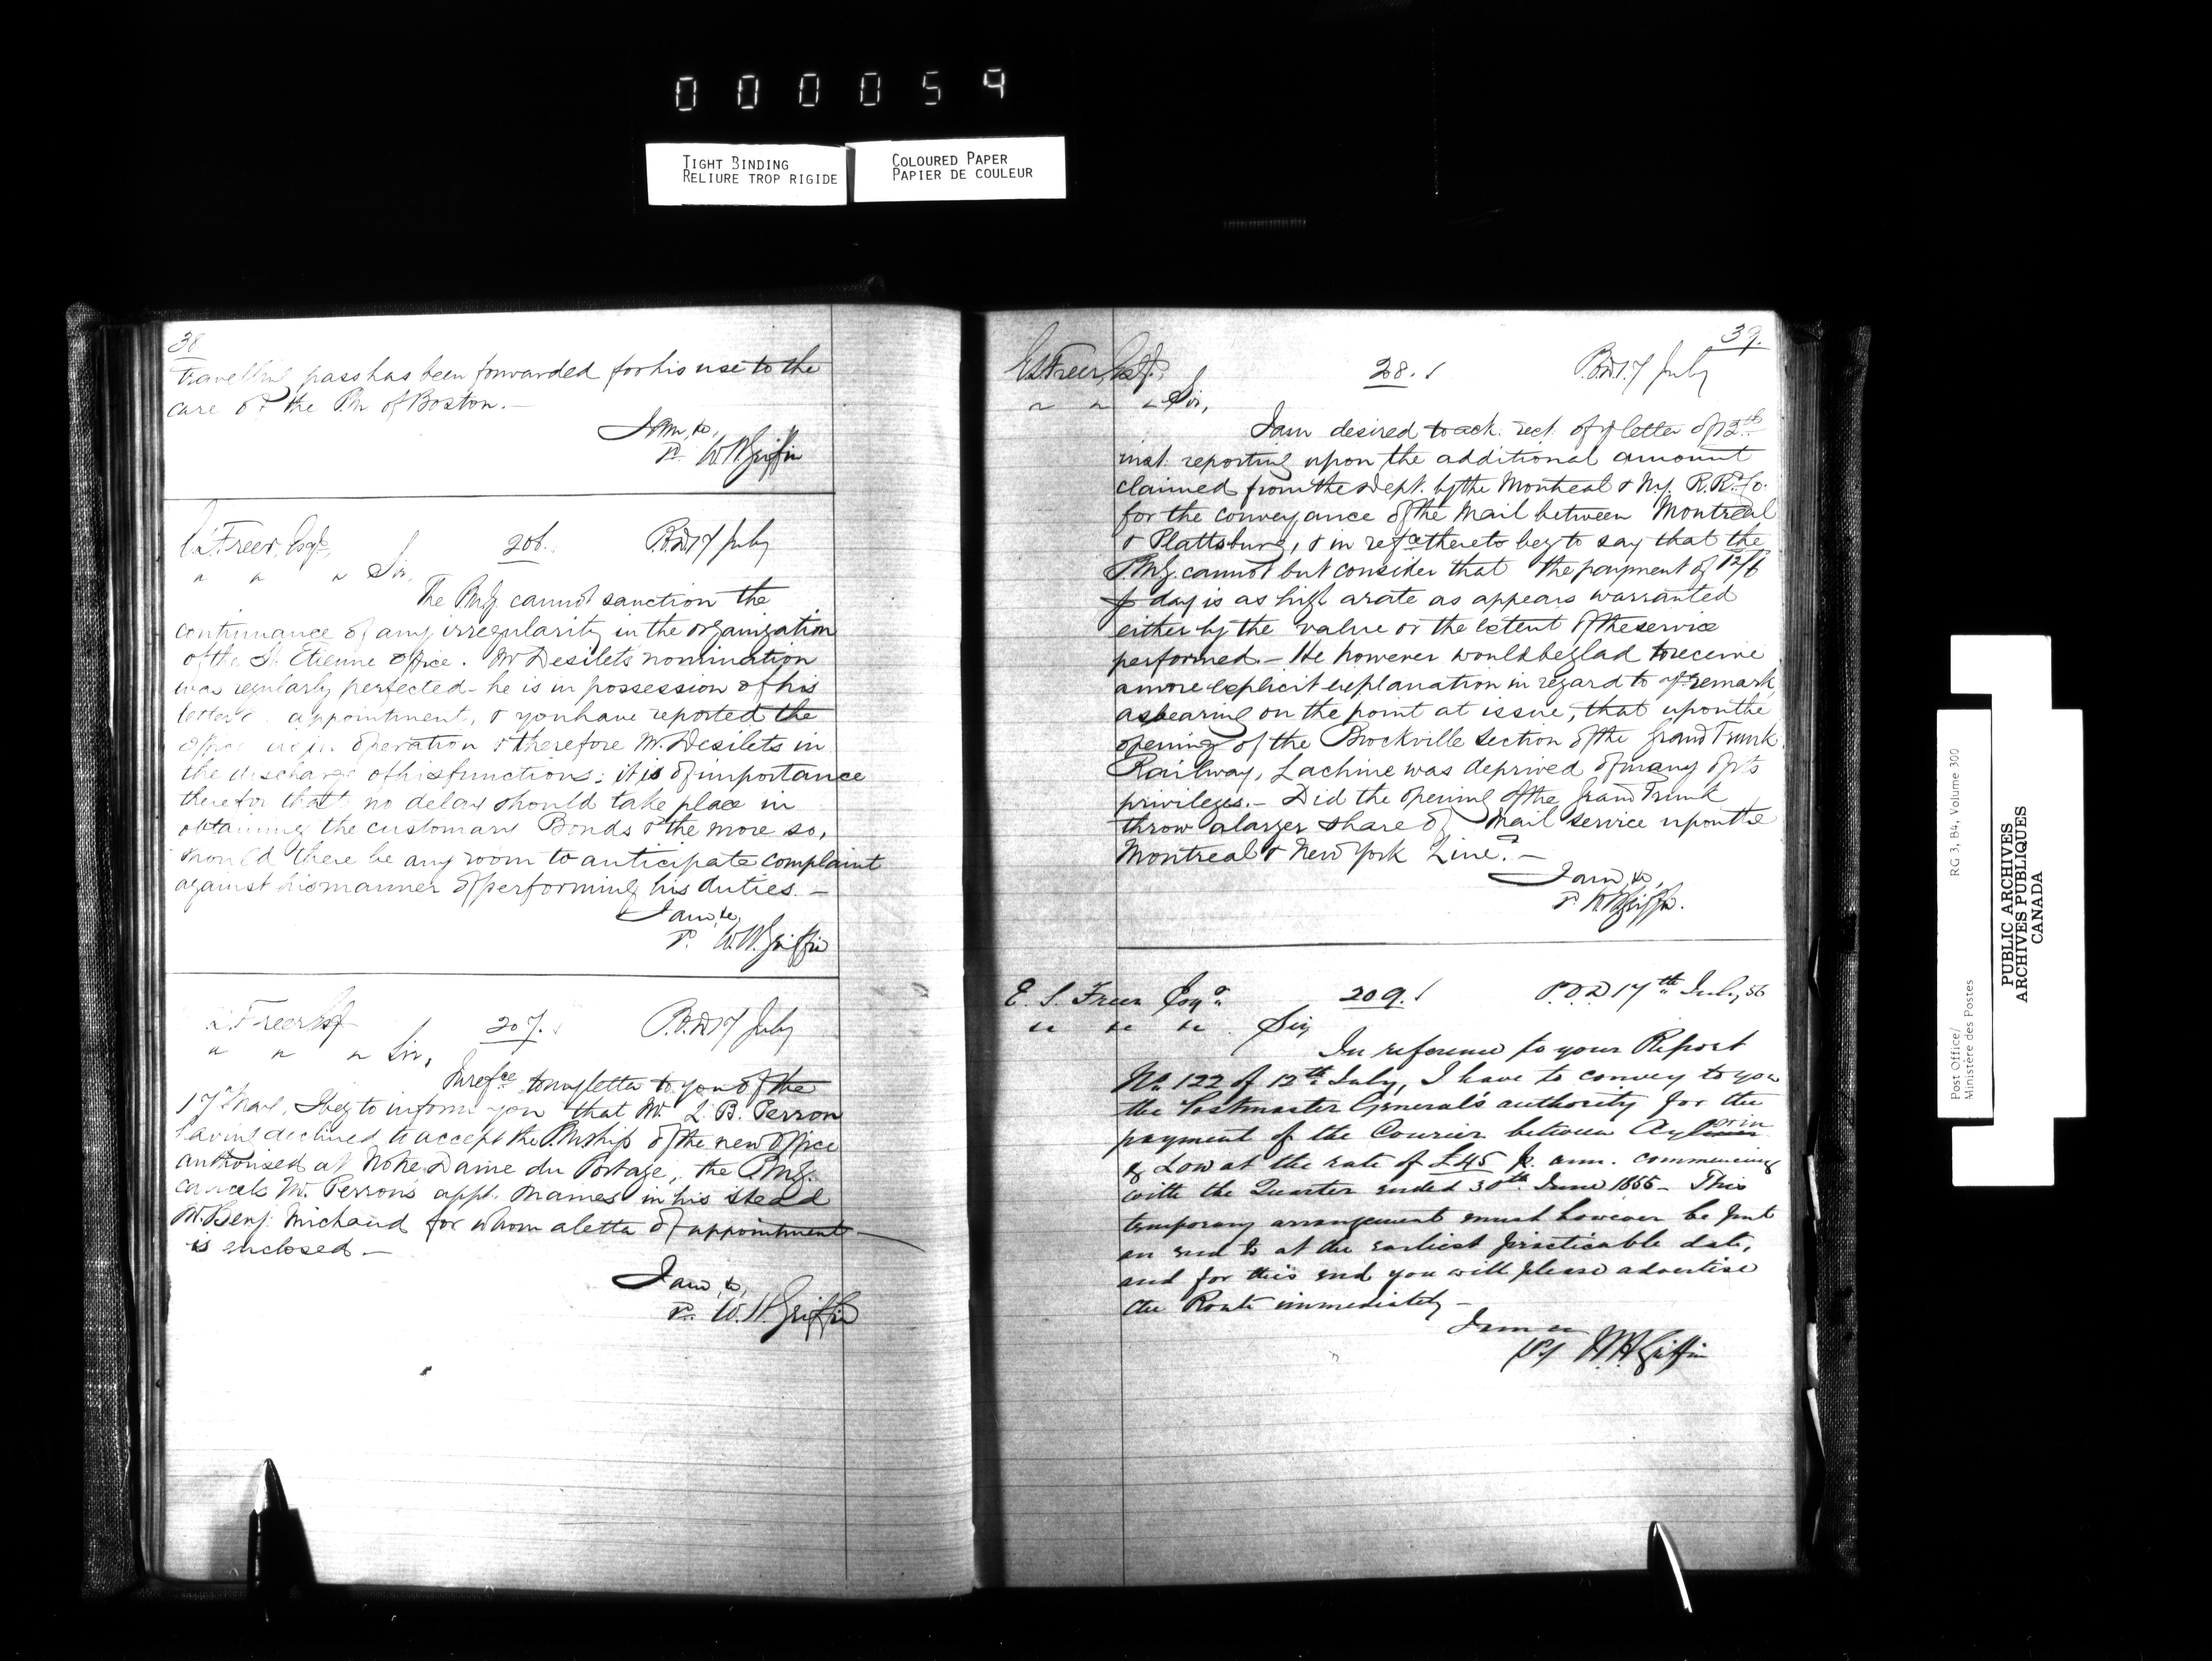 000059
TIGHT BINDING
RELIURE TROP RIGIDE
COLOURED PAPER
PAPIER DE COULEUR
38
travelling pass has been forwarded for his use to the
care of the PM of Boston. —
I am, &c,
P. W H Griffin
E S Freer, Esqr, 206. P.O.D 17 July
" " " Sir,
The PMG. cannot sanction the
continuance of any irregularity in the organization
of the St. Etienne Office. Mr Desilets nomination
was regularly perfected - he is in possession of his
letter of appointment, & you have reported the
office as in operation & therefore Mr. Desilets in
the discharge of his functions: it is of importance
therefor that no delay should take place in
obtaining the customary Bonds & the more so,
should there be any room to anticipate complaint
against his manner of performing his duties. —
I am, &c,
P. W. H. Griffin
E S Freer Esqr 207. P.O.D 17 July
" " " Sir,
In refce to my letter to you of the
17th , I beg to inform you that Mr. L. B. Perron
having declined to accept the PMship of the new Office
authorised at Notre Dame du Portage, the P.M.G.
cancels Mr. Perron's appt. & names in his stead
Mr. Benj. Michaud for whom a letter of appointment
is enclosed —
I am, &c,
P. W. H. Griffin
39.
E S Freer, Esqr, 208. P.O.D 17 July
" " " Sir,
I am desired to ack. rect. of yr letter of 12th
inst. reporting upon the additional amount
claimed from the Dept. by the Montreal & N.Y. R.R. Co.
for the conveyance of the Mail between Montreal
& Plattsburg, & in refce thereto beg to say that the
P.M.G. cannot but consider that the payment of 12/6
p day is as high a rate as appears warranted
either by the value or the extent of the service
performed. — He however would be glad to receive
a more explicit explanation in regard to yr remark,
as bearing on the point at issue, that upon the
opening of the Brockville section of the Grand Trunk
Railway, Lachine was deprived of many of its
privileges. — Did the opening of the Grand Trunk
throw a larger share of Mail service upon the
Montreal & New York Line? —
I am, &c,
P. W H Griffin.
E. S. Freer Esqr 209. P.O.D 17th July, 56
" " " Sir,
In reference to your Report
No. 122 of 12th July, I have to convey to you
the Postmaster General's authority for the
payment of the Courier between Aylwin
& Low at the rate of £45 p. ann. commencing
with the Quarter ended 30th June 1856 - This
temporary arrangement must however be put
an end to at the earliest practicable date,
and for this end you will please advertise
the Route immediately —
I am &c
W H Griffin
Post Office/
Ministère des Postes
RG 3, B4, Volume 300
PUBLIC ARCHIVES
ARCHIVES PUBLIQUES
CANADA